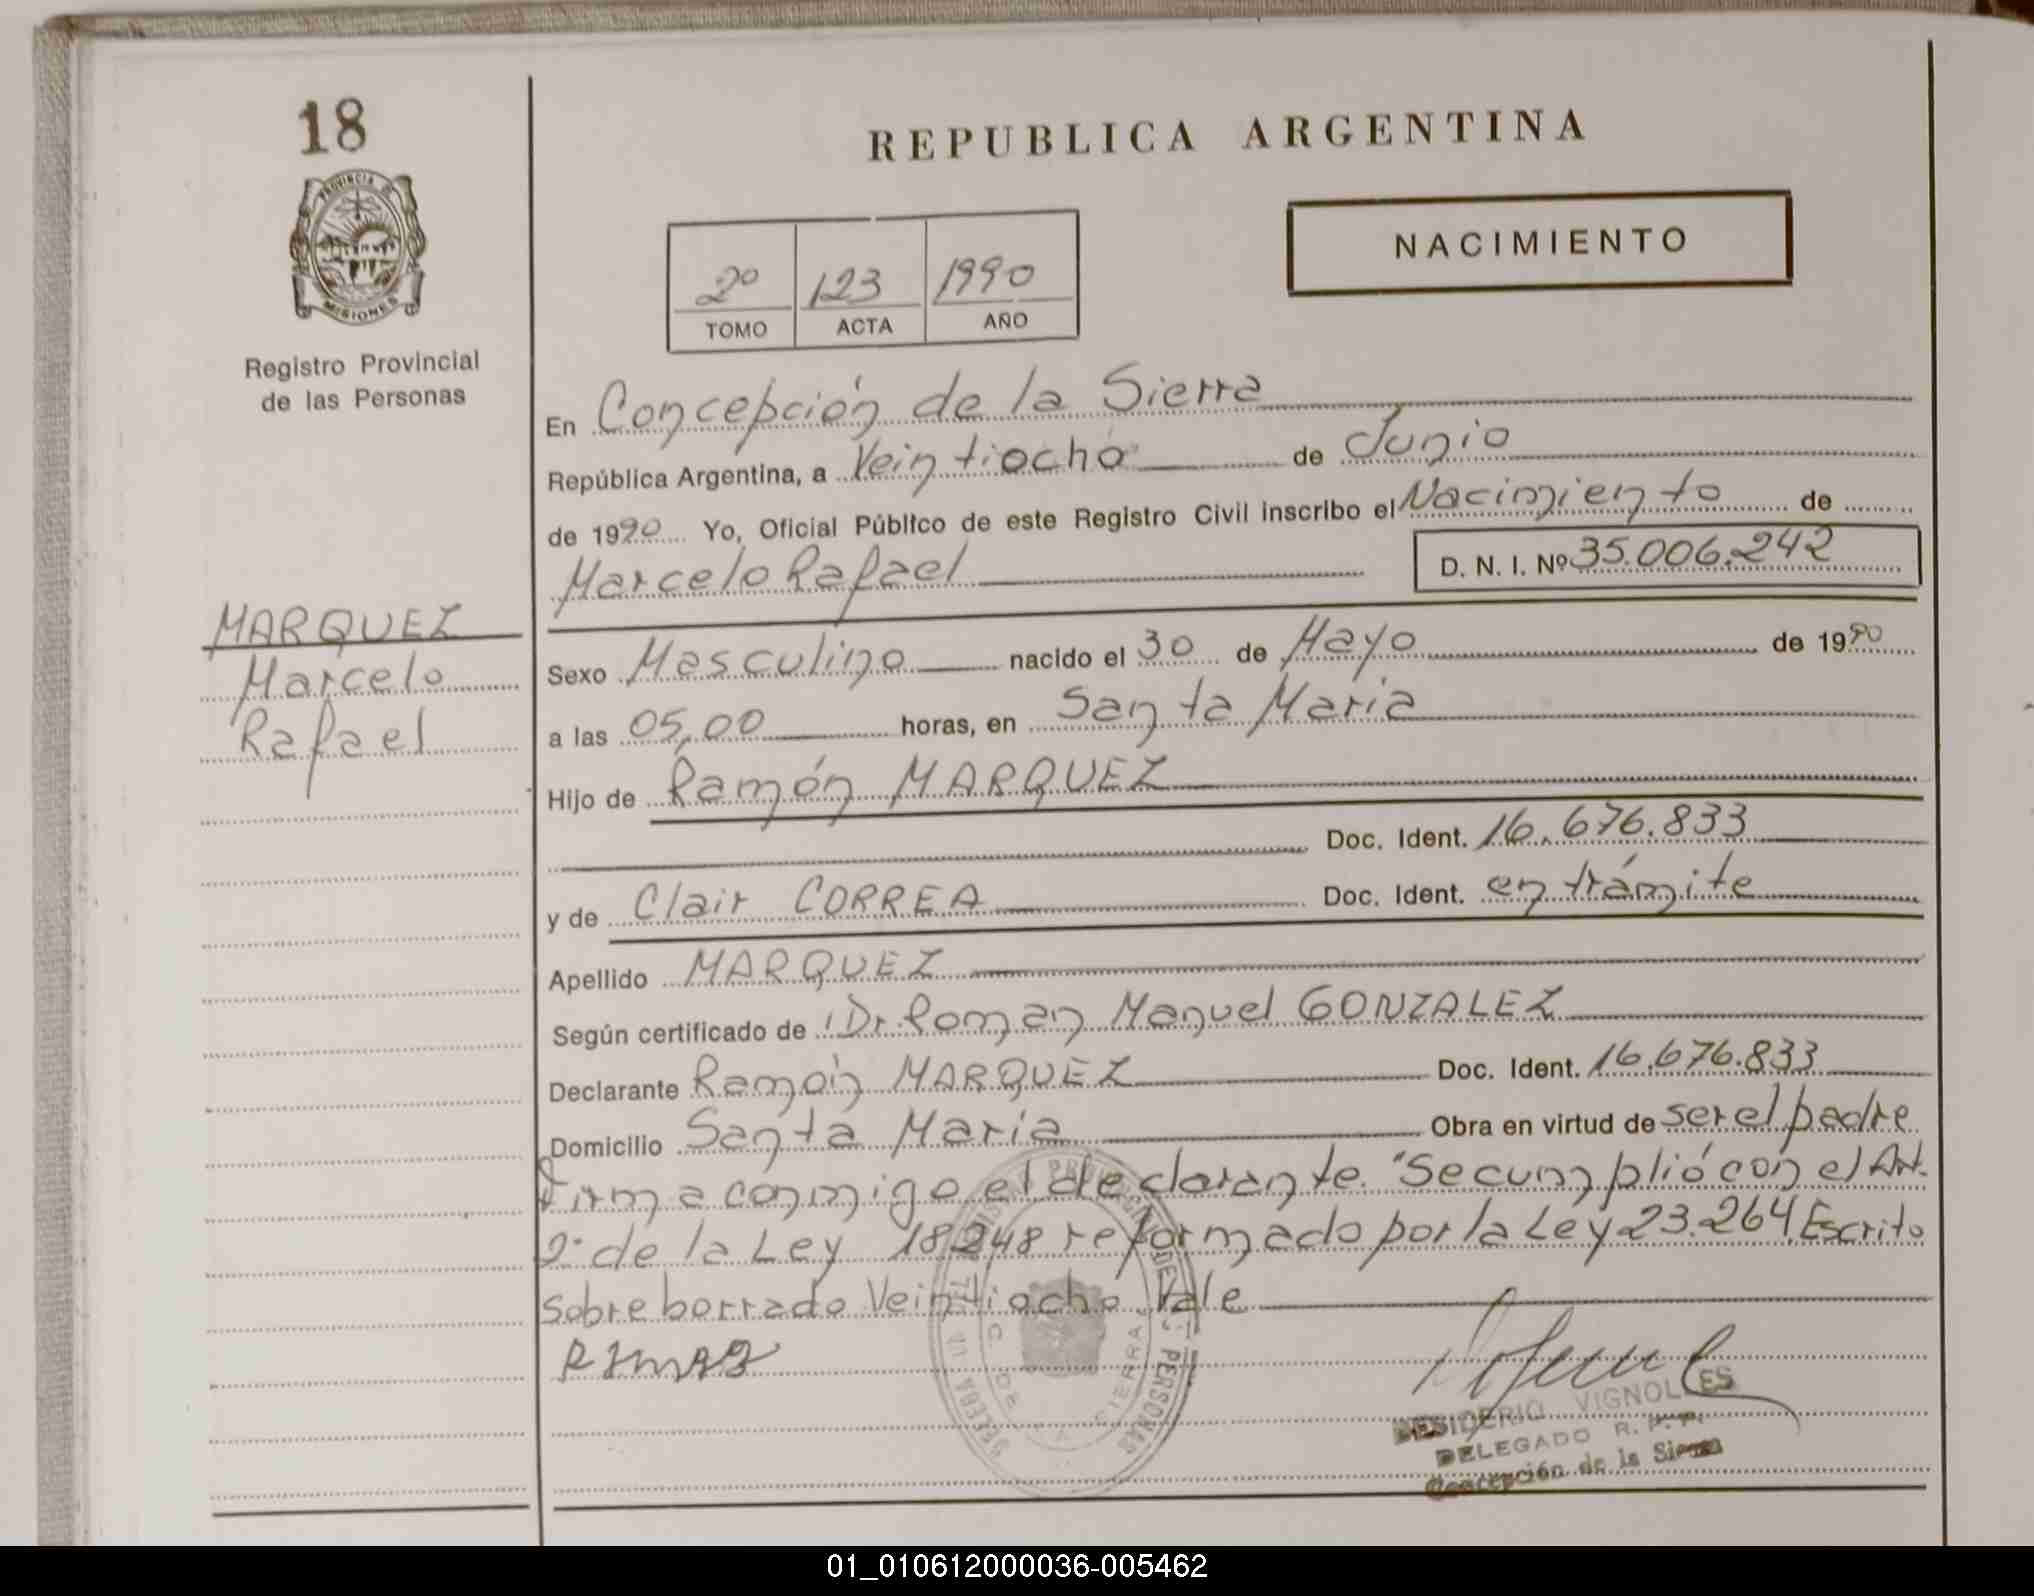 18
PROVINCIA DE
MISIONES
Registro Provincial
de las Personas
MARQUEZ
Marcelo
Rafael
REPUBLICA ARGENTINA
NACIMIENTO
2º 123 1990
TOMO ACTA AÑO
En Concepción de la Sierra
República Argentina, a Veintiocho de Junio
de 1990 Yo, Oficial Público de este Registro Civil inscribo el Nacimiento de
Marcelo Rafael D. N. I. Nº 35.006.242
Sexo Masculino nacido el 30 de Mayo de 1990
a las 05,00 horas, en Santa Maria
Hijo de Ramón MARQUEZ
Doc. Ident. 16.676.833
y de Clair CORREA Doc. Ident. en trámite
Apellido MARQUEZ
Según certificado de Dr. Roman Manuel GONZALEZ
Declarante Ramón MARQUEZ Doc. Ident. 16.676.833
Domicilio Santa María Obra en virtud de ser el padre
firma conmigo el declarante. "Se cumplió con el Art.
2º de la Ley 18248 reformado por la Ley 23.264. Escrito
sobre borrado Veintiocho Vale
DESIDERIO VIGNOLLES
DELEGADO R. P. P.
Concepción de la Sierra
01_010612000036-005462